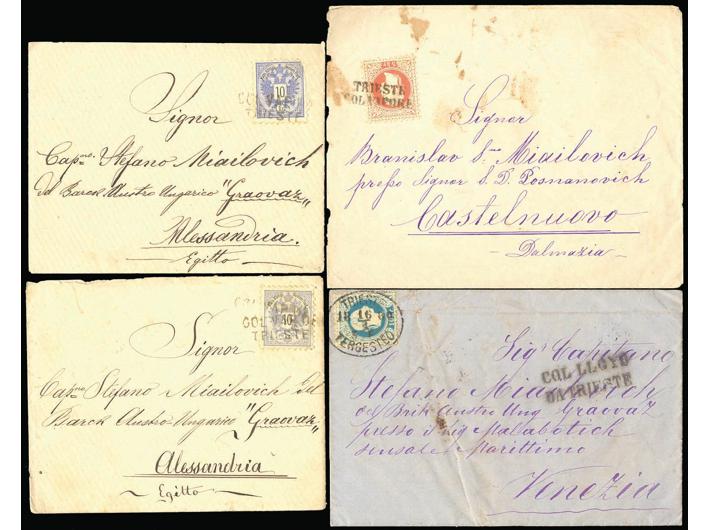 10
COL VAPORE
TRIESTE
Signor
Capno. Stefano Miailovich
del Barck Austro Ungarico "Graovaz"
Alessandria.
Egitto
TRIESTE
COL VAPORE
Signor
Branislav S. Miailovich
presso Signor S. D. Posnanovich
Castelnuovo
Dalmazia
COL VAPORE
TRIESTE
Signor
Capno Stefano Miailovich del
Barck Austro Ungarico "Graovaz"
Alessandria
Egitto
TRIESTE
18 16
TERGESTEO
Sig Capitano
COL LLOYD
DA TRIESTE
Stefano
del Brik Austro Ung Graovaz
presso il Sig Malabotich
sensale Marittimo
Venezia